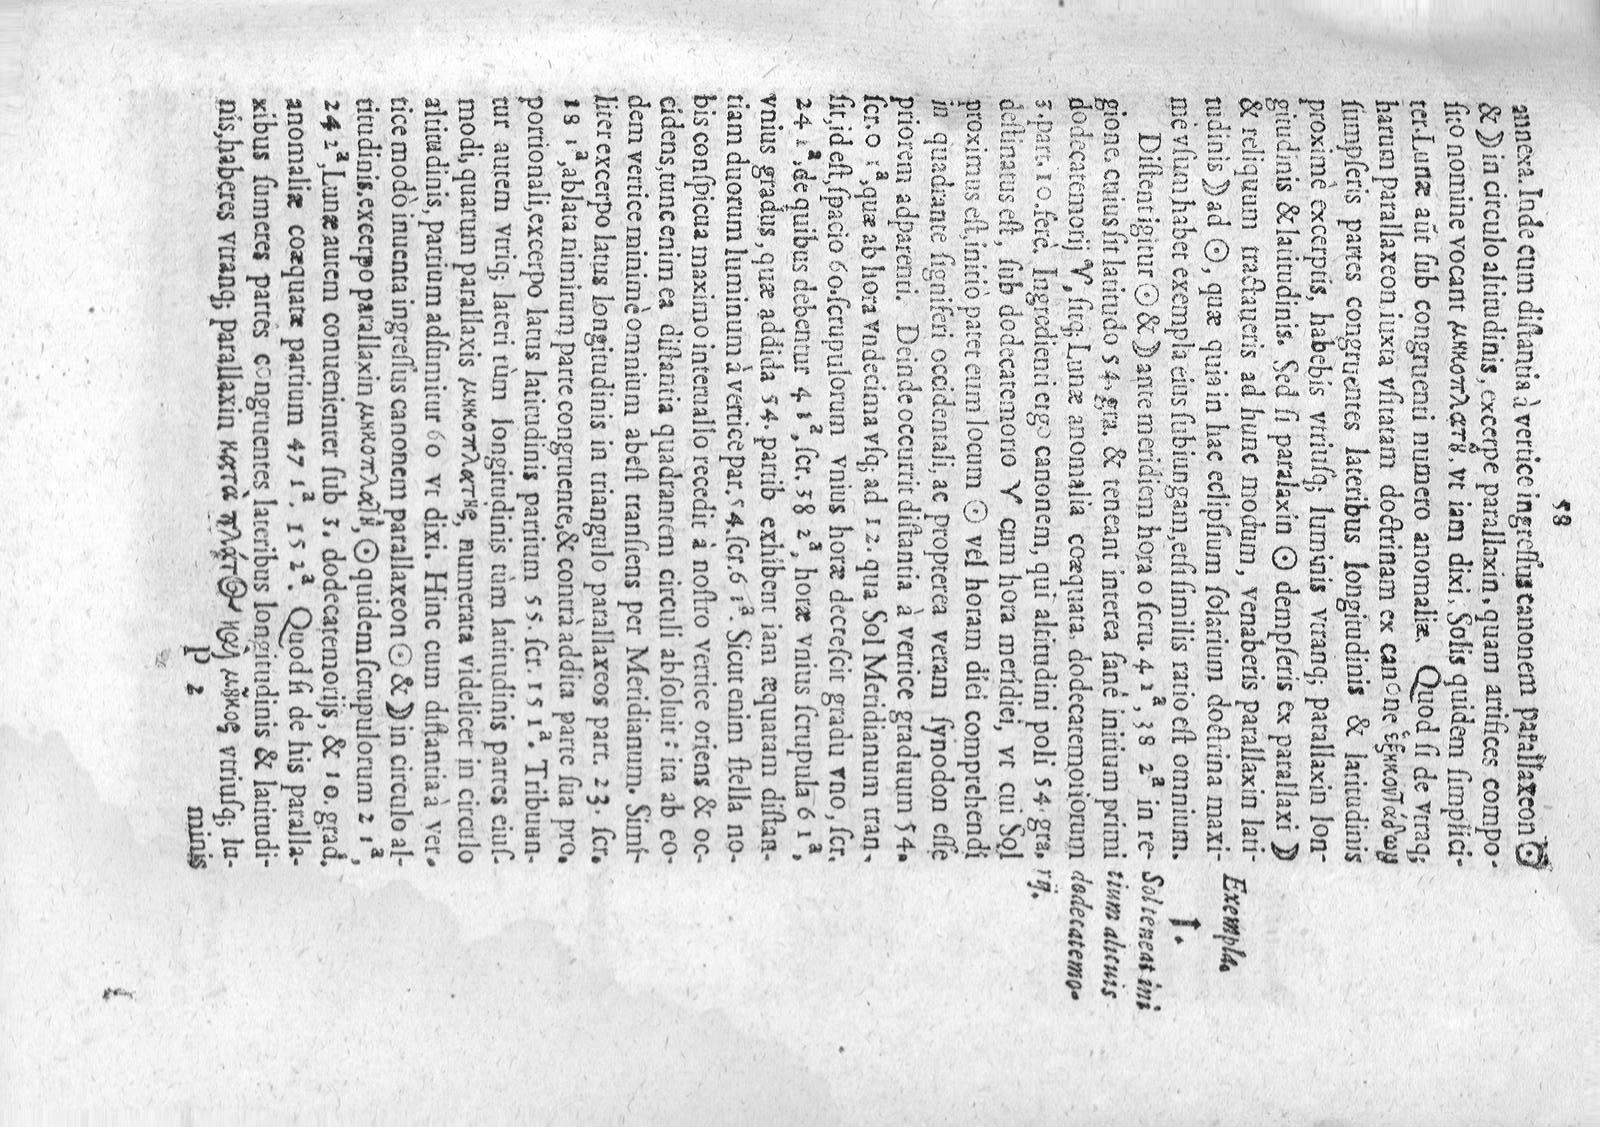 58
annexa. Inde cum distantia à vertice ingressus canonem parallaxeon ☉
& ☽ in circulo altitudinis, excerpe parallaxin, quam artifices compo-
sito nomine vocant μηκοπλατȣ, vt iam dixi, Solis quidem simplici-
ter. Lunæ aūt sub congruenti numero anomaliæ. Quod si de vtraq;
harum parallaxeon iuxta vsitatam doctrinam ex canone ἑξηκονTάδων
sumpseris partes congruentes lateribus longitudinis & latitudinis
proximè excerptis, habebis vtriusq; luminis vtranq; parallaxin lon-
gitudinis & latitudinis. Sed si paralaxin ☉ dempseris ex parallaxi ☽
& reliquum tractaueris ad hunc modum, venaberis parallaxin lati-
tudinis ☽ ad ☉, quæ quia in hac eclipsium solarium doctrina maxi-
mè vsum habet exempla eius subiungam, etsi similis ratio est omnium.
Exempla.
1.
Distent igitur ☉ & ☽ ante meridiem hora 0 scru. 4 1ª, 38 2ª in re-
gione, cuius sit latitudo 54. gra. & teneant interea sanè initium primi
dodecatemorij ♈, sitq; Lunæ anomalia coæquata, dodecatemoriorum
3. part. 10. ferè. Ingredienti ergo canonem, qui altitudini poli 54. gra.
Sol teneat ini
tium alicuis
dodecatemo-
rij.
destinatus est, sub dodecatemorio ♈ cum hora meridiei, vt cui Sol
proximus est, initiò patet eum locum ☉ vel horam diei comprehendi
in quadrante signiferi occidentali, ac propterea veram synodon esse
priorem adparenti. Deinde occurrit distantia à vertice graduum 54.
scr. 0 1ª, quæ ab hora vndecima vsq; ad 12. qua Sol Meridianum tran-
sit, id est, spacio 60. scrupulorum vnius horæ decrescit gradu vno, scr.
24 1ª, de quibus debentur 4 1ª, scr. 38 2ª, horæ vnius scrupula 6 1ª,
vnius gradus, quæ addita 54. partib exhibent iam æquatam distan-
tiam duorum luminum à vertice par. 54. scr. 6 1ª. Sicut enim stella no-
bis conspicua maximo interuallo recedit à nostro vertice oriens & oc-
cidens, tunc enim ea distantia quadrantem circuli absoluit: ita ab eo-
dem vertice minimè omnium abest transiens per Meridianum. Simi-
liter excerpo latus longitudinis in triangulo parallaxeos part. 23. scr.
18 1ª, ablata nimirum, parte congruente, & contrà addita parte sua pro-
portionali, excerpo latus latitudinis partium 55. scr. 15 1ª. Tribuun-
tur autem vtriq; lateri tùm longitudinis tùm latitudinis partes eius-
modi, quarum parallaxis μηκοπλατης, numerata videlicet in circulo
altitudinis, partium adsumitur 60 vt dixi. Hinc cum distantia à ver-
tice modò inuenta ingressus canonem parallaxeon ☉ & ☽ in circulo al-
titudinis, excerpo parallaxin μηκοπλατȣ, ☉ quidem scrupulorum 2 1ª,
24 2ª, Lunæ autem conuenienter sub 3. dodecatemorijs, & 10. grad.
anomaliæ coæquatæ partium 47 1ª. 15 2ª. Quod si de his paralla-
xibus sumeres partes congruentes lateribus longitudinis & latitudi-
nis, haberes vtranq; parallaxin κατὰ πλάτος καὶ μῆκος vtriusq; lu-
P 2 minis